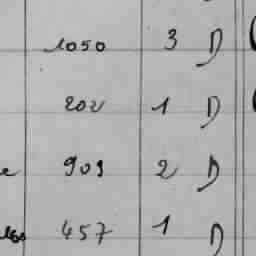 1050 3 D
202 1 D
903 2 D
457 1 D